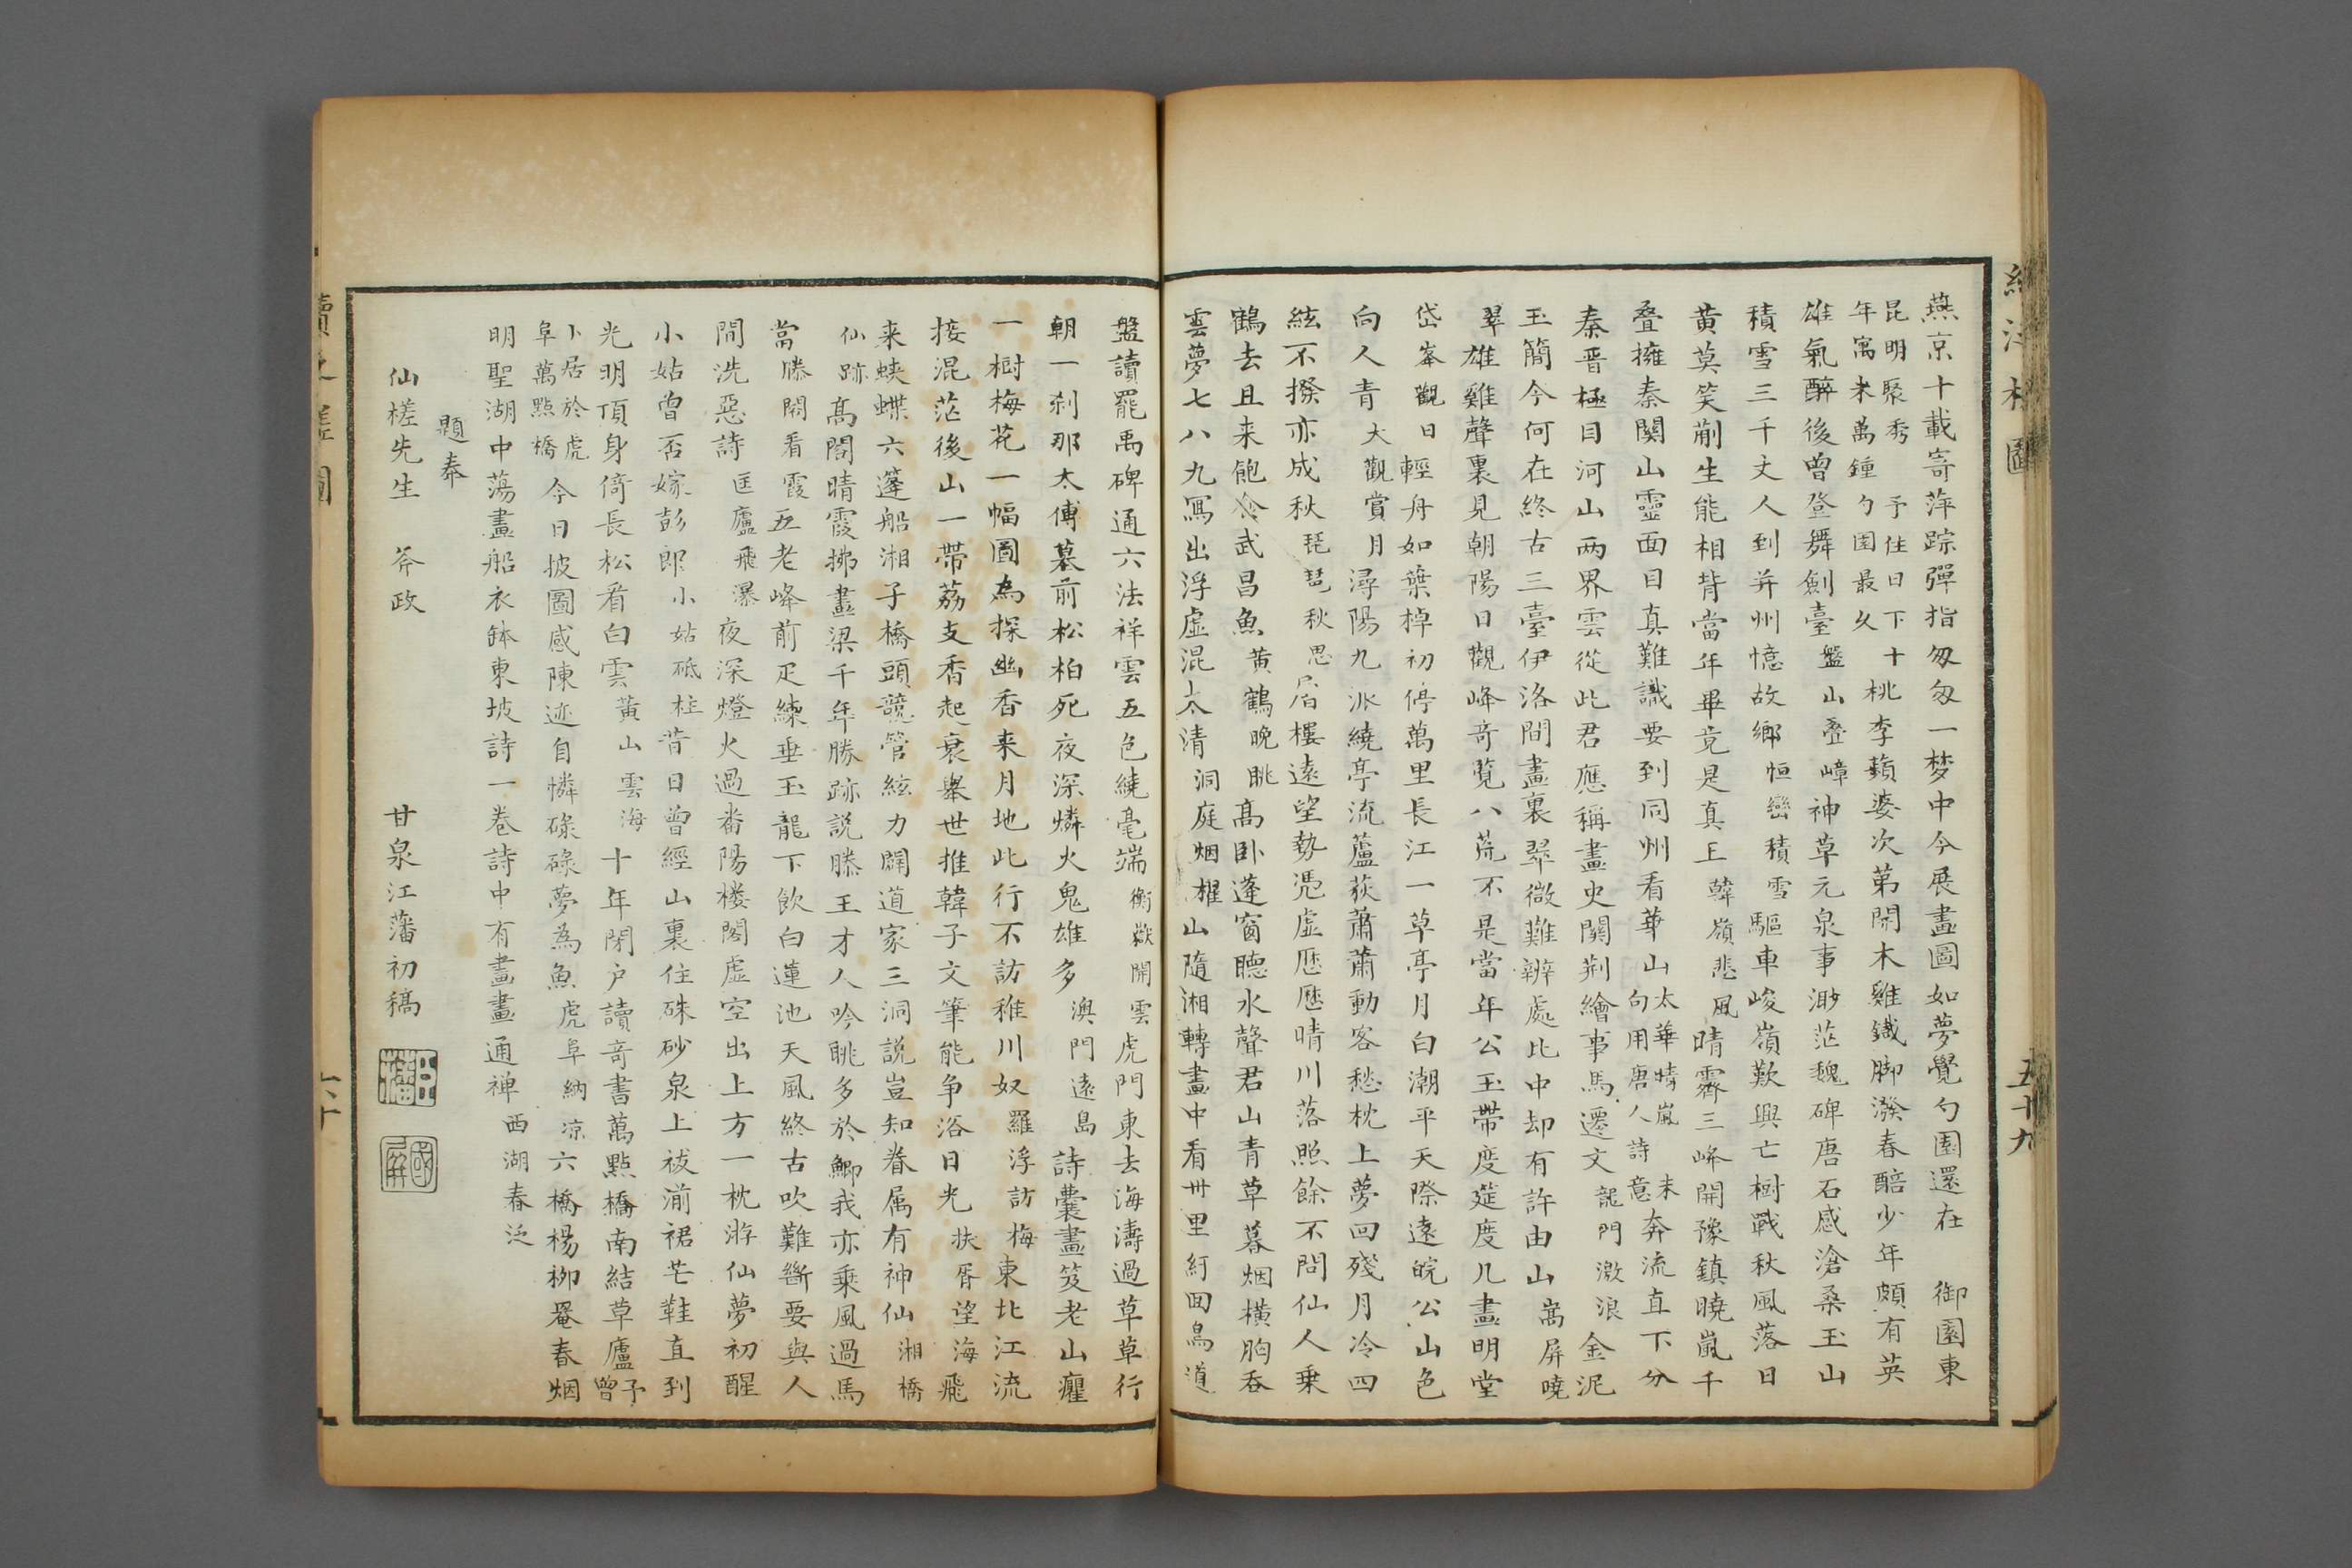 燕京十載寄萍踪彈指匆匆一梦中今展畫圖如夢覺勺園還在　御園東
昆明聚秀　予住日下十
年寓米萬鍾勺園最久
桃李蘋婆次第開木雞鐵脚潑春醅少年頗有英
雄氣醉後曾登舞劍臺盤山疊嶂神草元泉事渺茫魏碑唐石感滄桑玉山
積雪三千丈人到并州憶故鄉恒巒積雪驅車峻嶺歎興亡樹戰秋風落日
黄莫笑蒯生能相背當年畢竟是真王韓嶺悲風晴霽三峰開豫鎮曉嵐千
叠擁秦關山靈面目真難識要到同州看華山
太華晴嵐　末
句用唐人詩意
奔流直下分
秦晋極目河山两界雲從此君應稱畫史關荆繪事馬遷文龍門激浪金泥
玉簡今何在終古三臺伊洛間畫裏翠微難辨處此中却有許由山嵩屏曉
翠雄雞聲裏見朝陽日觀峰奇覧八荒不是當年公玉帶度筵度几畫明堂
岱峯觀日輕舟如葉棹初停萬里長江一草亭月白潮平天際遠皖公山色
向人青大觀賞月潯陽九派繞亭流蘆荻蕭蕭動客愁枕上夢回殘月冷四
絃不撥亦成秋琵琶秋思層樓遠望勢凭虛歷歷晴川落照餘不問仙人乗
鶴去且来飽喰武昌魚黄鶴晚眺高卧蓬窗聽水聲君山青草暮烟横胸吞
雲夢七八九寫出浮虛混太清洞庭烟櫂山隨湘轉畫中看卅里紆回鳥道
盤讀罷禹碑通六法祥雲五色繞毫端衡嶽開雲虎門東去海濤過草草行
朝一刹那太傅墓前松柏死夜深燐火鬼雄多澳門遠島詩囊畫笈老山癯
一樹梅花一幅圖為探幽香来月地此行不訪稚川奴羅浮訪梅東北江流
接混茫後山一帶荔支香起衰舉世推韓子文筆能争浴日光扶胥望海飛
来蛺蝶六篷船湘子橋頭競管絃力闢道家三洞説豈知眷属有神仙湘橋
仙跡高閣晴霞拂畫梁千年勝跡説滕王才人吟眺多於鯽我亦乗風過馬
當滕閣看霞五老峰前疋練垂玉龍下飲白蓮池天風終古吹難斷要與人
間洗惡詩匡廬飛瀑夜深燈火過番陽楼閣虛空出上方一枕游仙夢初醒
小姑曾否嫁彭郎小姑砥柱昔日曾經山裏住硃砂泉上祓湔裙芒鞋直到
光明頂身倚長松看白雲黄山雲海十年閉户讀奇書萬點橋南結草廬
予曾
卜居於虎
阜萬點橋
今日披圖感陳迹自憐碌碌夢為魚虎阜納凉六橋楊柳罨春烟
明聖湖中蕩畫船衣鉢東坡詩一巻詩中有畫畫通禅西湖春泛
題奉
仙槎先生　斧政　　甘泉江藩初稿
五十九
六十